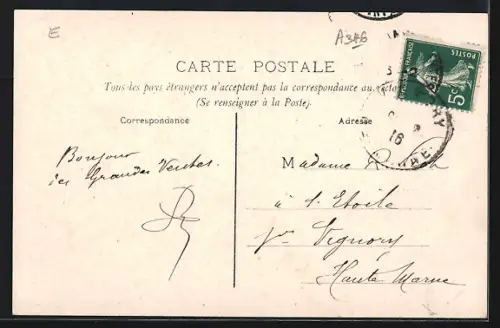 E
A346
CARTE POSTALE
Tous les pays étrangers n'acceptent pas la correspondance au recto
(Se renseigner à la Poste).
Correspondance
Adresse
POSTES
5c
16
Bonjour
des Grandes Ventes.
Madame
à l'Etoile
pr Vignory
Haute Marne